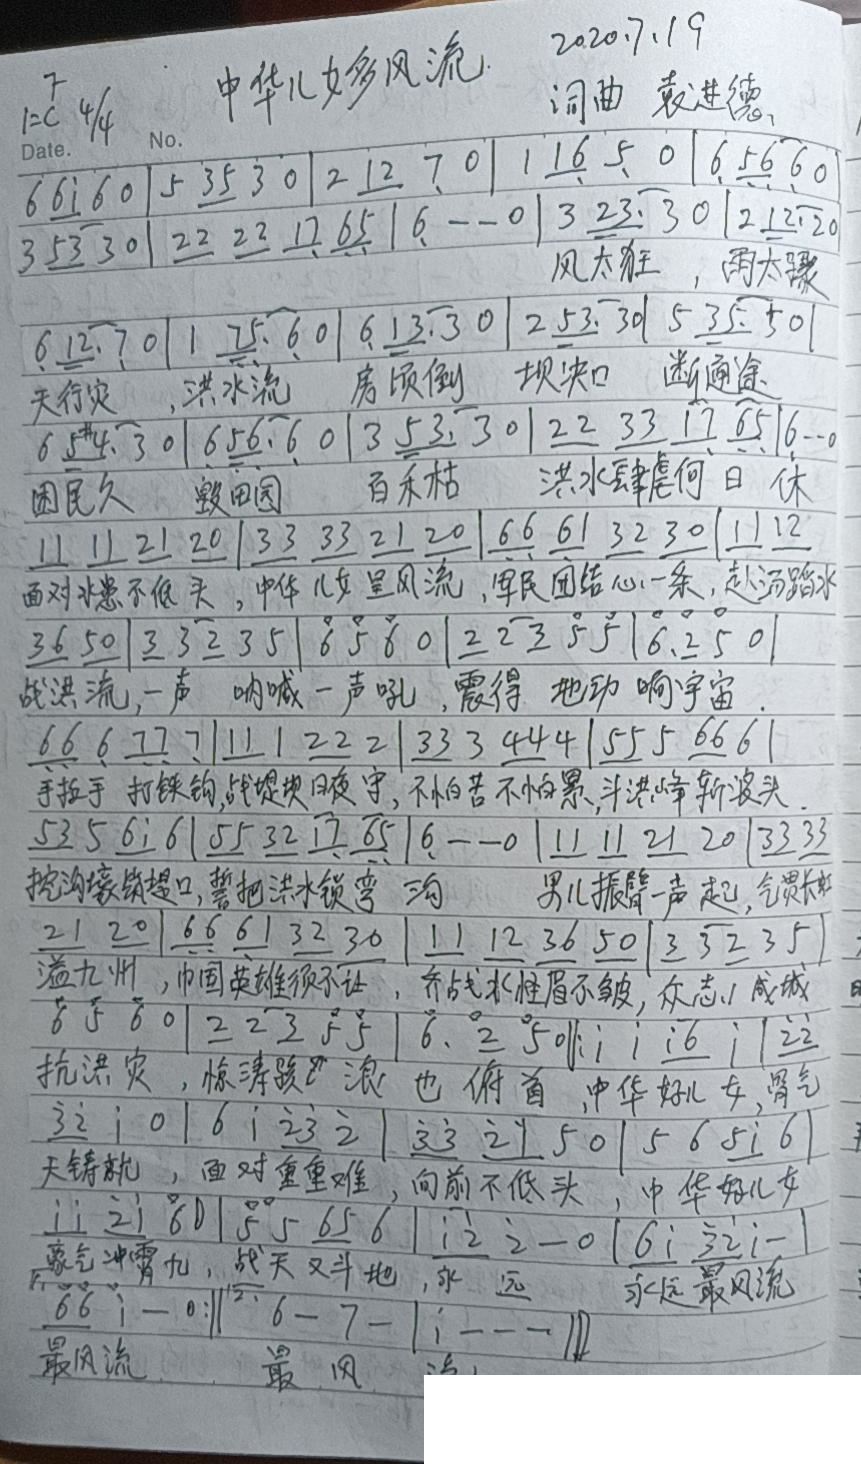 中华儿女多风流 2020.7.19
1=C 4/4 词曲 袁进德
Date. No.
6 6i 6 0 | 5 35 3 0 | 2 12 7 0 | 1 16 5 0 | 6 56 6 0
3 53 3 0 | 22 22 17 65 | 6 - - 0 | 3 23. 3 0 | 2 12. 2 0
风太狂 , 雨太骤
6 12. 7 0 | 1 75. 6 0 | 6 13. 3 0 | 2 53. 3 0 | 5 35. 5 0 |
天行灾 , 洪水流 房倾倒 坝决口 断通途
6 5#4. 3 0 | 6 56. 6 0 | 3 53. 3 0 | 22 33 17 65 | 6 - - 0
困民久 毁田园 百禾枯 洪水肆虐何日休
11 11 21 20 | 33 33 21 20 | 66 61 32 30 | 11 12
面对水患不低头 , 中华儿女呈风流 , 军民团结心一条 , 赴汤蹈水
36 50 | 3 3 2 3 5 | 6 5 6 0 | 2 2 3 5 5 | 6. 2 5 0 |
战洪流 , 一声 呐喊一声吼 , 震得 地动 啊宇宙 .
66 6 77 7 | 11 1 22 2 | 33 3 44 4 | 55 5 66 6 |
手拉手 打铁钩 , 战堤坝日夜守 , 不怕苦不怕累 , 斗洪峰斩波头 .
53 5 6i 6 | 55 32 17 65 | 6 - - 0 | 11 11 21 20 | 33 33
挖沟壕锁堤口 , 誓把洪水锁弯沟 男儿振臂一声起 , 气贯长虹
21 20 | 66 61 32 30 | 11 12 36 50 | 3 3 2 3 5 |
溢九州 , 巾国英雄须不让 , 齐战水怪眉不皱 , 众志成城
6 5 6 0 | 2 2 3 5 5 | 6. 2 5 0 ||: i i i6 i | 22
抗洪灾 , 惊涛骇浪 也俯首 , 中华好儿女 , 骨气
32 i 0 | 6 i 23 2 | 33 21 5 0 | 5 6 5i 6 |
天铸就 , 面对重重难 , 向前不低头 , 中华好儿女
ii 2i 6 0 | 5 5 65 6 | i2 2 - 0 | 6i 32 i - |
豪气冲霄九 , 战天又斗地 , 永远 永远最风流
66 i - 0 :|| 2. 6 - 7 - | i - - - ||
最风流 最风